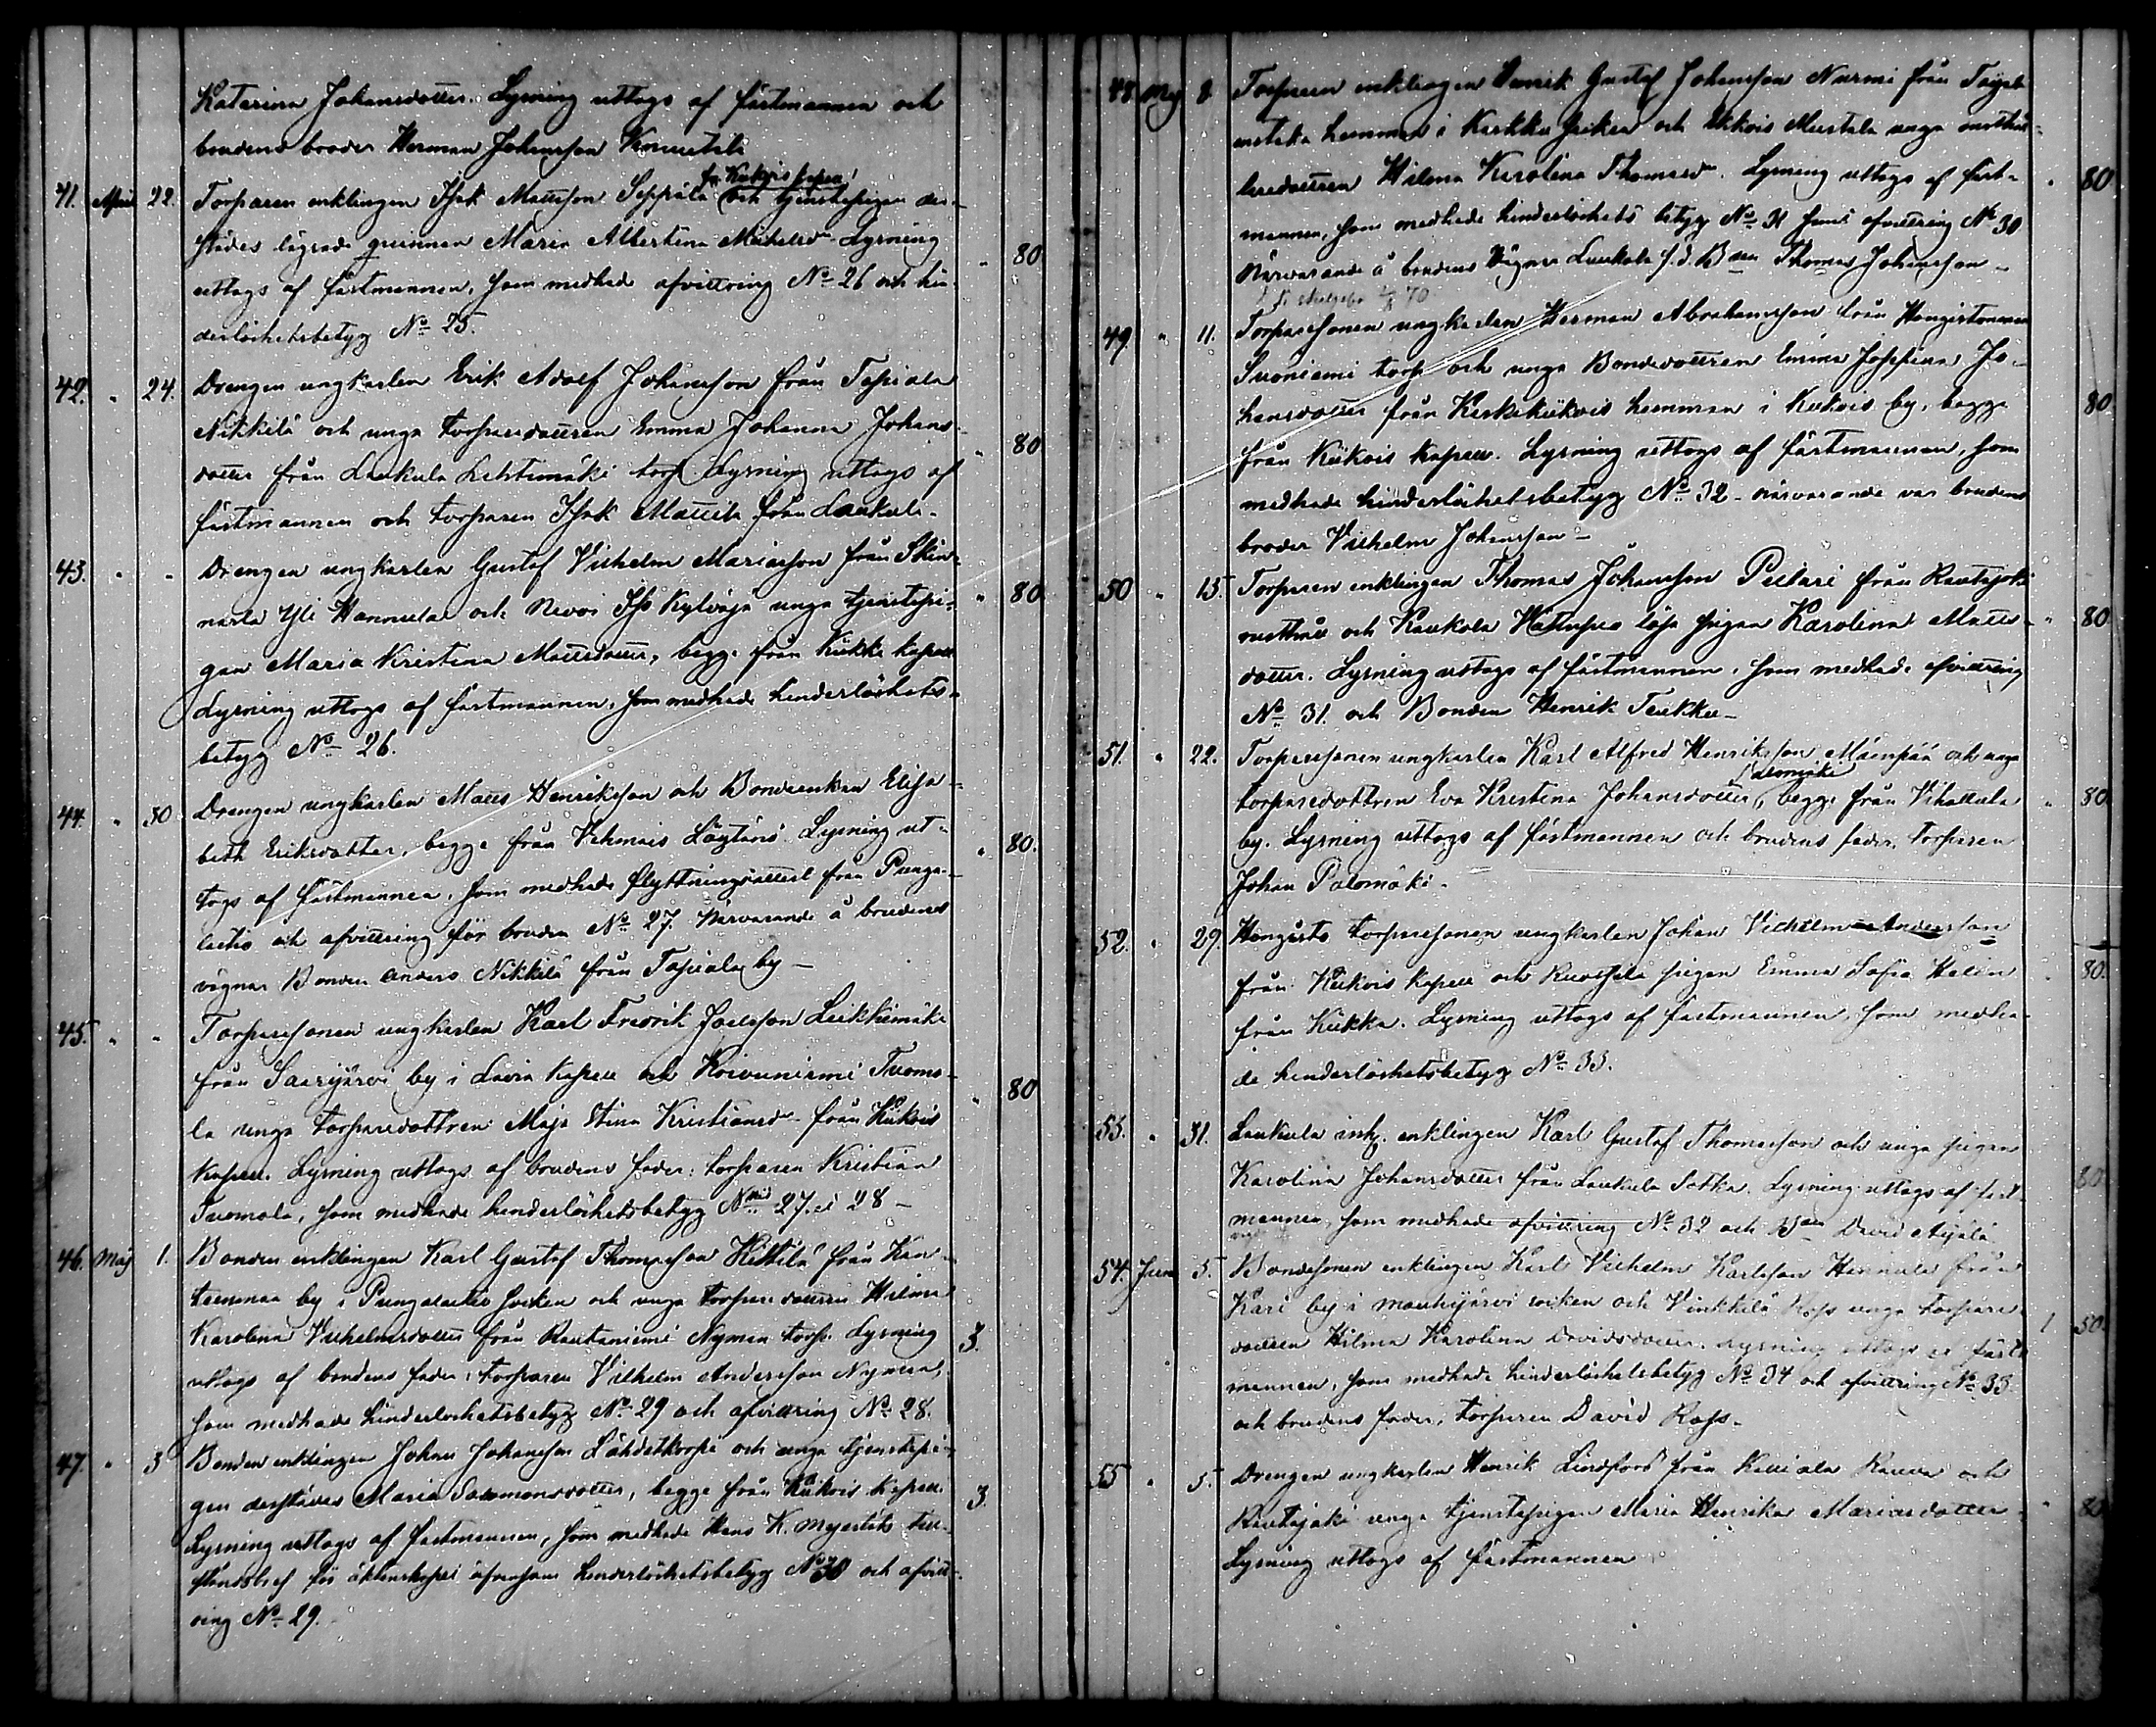 Katarina Johansdotter. Lysning uttogs af fästmannen och
brudens broder Herman Johansson Knuutila
fr. Kiikois kapell
41. April 22. Torparen enklingen Isak Mattsson Seppälä och tjenstepigan der-
städes lägrade qvinnan Maria Albertina Michelsdr. Lysning
uttogs af fästmannen, som medhade afvittring No 26 och hin- " 80
derlöshetsbetyg No 25.
42. " 24. Drengen ungkarlen Erik Adolf Johansson från Tapiala
Nikkilä och unga torparedottren Emma Johanna Johans-
dotter från Laukula Lehtimäki torp. Lysning uttogs af " 80
fästmannen och torparen Isak Mattila från Laukula.
43. " " Drengen ungkarlen Gustaf Vilhelm Mariasson från Skin-
narla Yli Hannula och Nevoi Iso Kylväjä unga tjenstepi- " 80
gan Maria Kristina Mattsdotter, begge från Kiikka kapell
Lysning uttogs af fästmannen, som medhade hinderlöshets-
betyg No 26.
44. " 30 Drengen ungkarlen Matts Henriksson och Bondeenkan Elisa-
beth Eriksdotter, begge från Vehmais Löytäri. Lysning ut- " 80.
togs af fästmannen, som medhade flyttningsattest från Punga-
laitio och afvittring för bruden No 27. Närvarande å brudens
vägnar Bonden Anders Nikkilä från Tapiala by —
45. " " Torparesonen ungkarlen Karl Fredrik Joelsson Leikkimäki
från Saarijärvi by i Lavia kapell och Koivuniemi Tuomo-
la unga torparedottren Maja Stina Kristiansdr. från Kiikois " 80
kapell. Lysning uttogs af brudens fader: torparen Kristian
Tuomola, som medhade hinderlöshetsbetyg No 27. & 28 —
46. Maj 1. Bonden enklingen Karl Gustaf Thomasson Kittilä från Kan-
teenmaa by i Pungalaitio socken och unga torparedottren Hilma
Karolina Vilhelmsdotter från Rautaniemi Nyman torp. Lysning 3.
uttogs af brudens fader: torparen Vilhelm Andersson Nyman,
som medhade hinderlöshetsbetyg No 29 och afvittring No 28.
47. " 3 Bonden enklingen Johan Johansson Lähdekorpi och unga tjenstepi-
gan derstädes Maria Salomonsdotter, begge från Kiikois kapell. 3.
Lysning uttogs af fästmannen, som medhade Hans K. Majestäts till-
ståndsbref för äktenskapet äfvensom hinderlöshetsbetyg No 30 och afvitt-
ring No 29.
48 Maj 8 Torparen enklingen Henrik Gustaf Johansson Nurmi från
hemman i Karkku socken och Ekkois Mustala unga
Hilma Karolina Thomasdr. Lysning uttogs af fäst- " 80
mannen, som medhade hinderlöshets betyg No 31 samt afvittring No 30
Närvarande å brudens vägnar Laukola Thomas Johansson —
70
49. " 11. Torparesonen ungkarlen Herman Abrahamsson från Hongistonmaa
Suoniemi torp och unga Bondedottren Emma Josefina Jo-
hansdotter från Keskikiikois hemman i Kiikois by, begge 80
från Kiikois kapell. Lysning uttogs af fästmannen, som
medhade hinderlöshetsbetyg No 32 — närvarande var brudens
broder Vilhelm Johansson —
50 " 15. Torparen enklingen Thomas Johansson Pelari från Rautajoki
och Kaukola Hattupea löse pigan Karolina Matts- " 80
dotter. Lysning uttogs af fästmannen, som medhade afvittring
No 31. och Bonden Henrik Tuukku —
51. " 22. Torparesonen ungkarlen Karl Alfred Henriksson Mäenpää och unga
Palomäki
torparedottren Eva Kristina Johansdotter, begge från Vihattula " 80
by. Lysning uttogs af fästmannen och brudens fader, torparen
Johan Palomäki —
52. " 29. Hongisto torparesonen ungkarlen Johan Vilhelm Andersson
från Kiikois kapell och pigan Emma Sofia Helin " 80.
från Kiikka. Lysning uttogs af fästmannen, som medha-
de hinderlöshetsbetyg No 33.
53. " 31. Laukula inh. enklingen Karl Gustaf Thomasson och unga pigan
Karolina Johansdotter från Laukula Sotka. Lysning uttogs af fäst- 80.
mannen, som medhade afvittring No 32 och David Äijälä.
54. Juni 5. Bondesonen enklingen Karl Vilhelm Karlsson Hannula från
Kari by i Mouhijärvi socken och Vinkkilä Rops unga torpare-
dottren Hilma Karolina Davidsdotter. Lysning uttogs af fäst- 1 50.
mannen, som medhade hinderlöshetsbetyg No 34 och afvittring No 33
och brudens fader, torparen David Rops.
55 " 5. Drengen ungkarlen Henrik Lindfors från och
Rautajoki unga tjenstepigan Maria Henrika Mariasdotter. " 80
Lysning uttogs af fästmannen